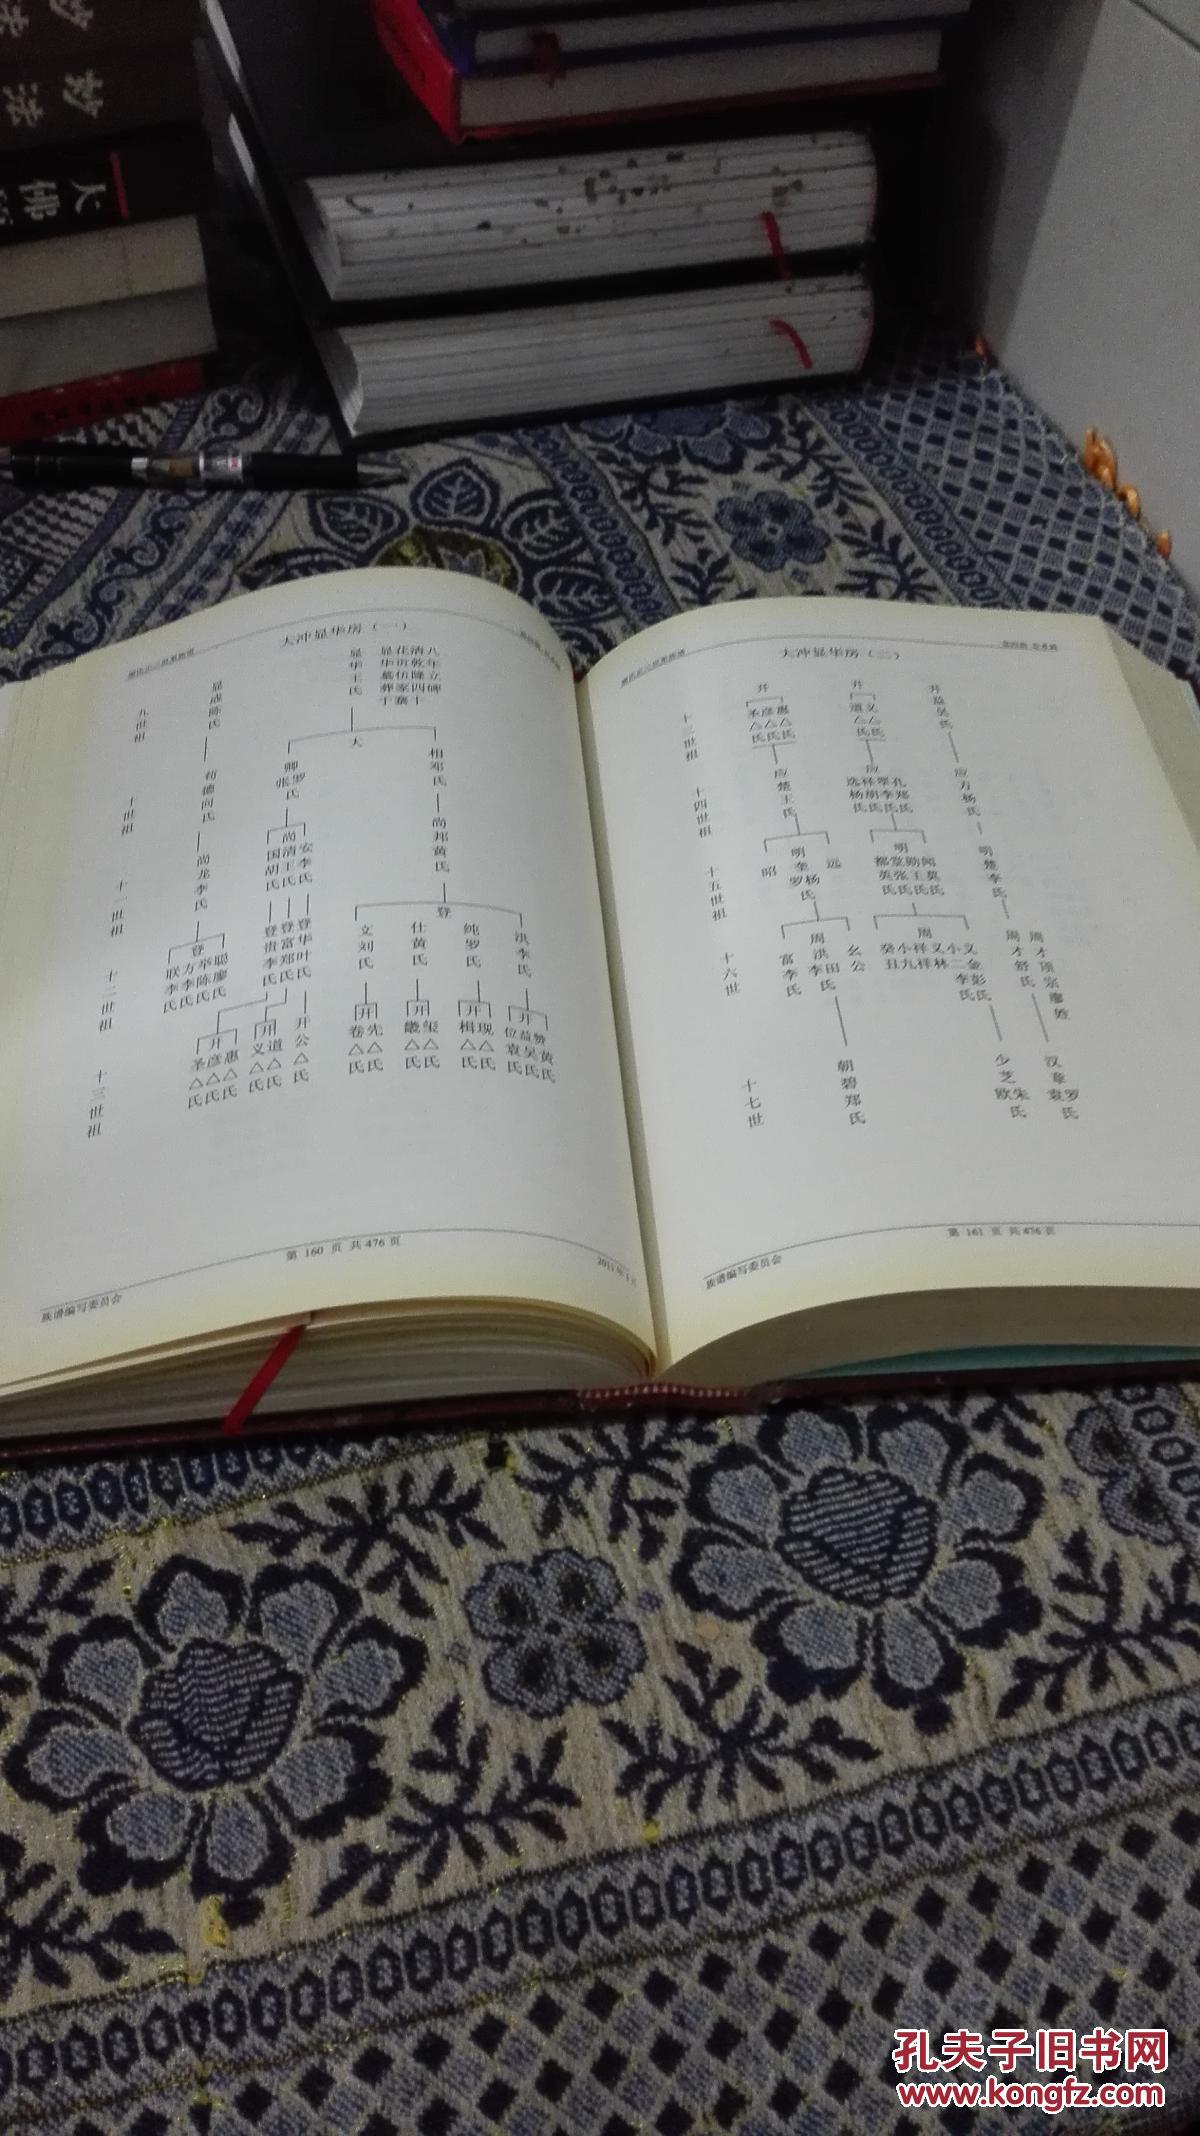 妙法
大佛
大冲显华房（一）
八年立碑
清乾隆四十
花贡仿家寨
显华墓葬于
显华王氏
大
相邓氏
卿张罗氏
尚邦黄氏
尚
安李氏
清王氏
国胡氏
登
洪李氏
纯罗氏
仕黄氏
文刘氏
登华叶氏
登富郑氏
登贵李氏
苟德向氏
尚龙李氏
登
聪廖氏
举陈氏
方李氏
联李氏
开
赞黄氏
益吴氏
位袁氏
开
现△氏
楫△氏
开
玺△氏
开
先△氏
卷△氏
开公△氏
开
道△氏
义△氏
开
惠△氏
彦△氏
圣△氏
九世祖
十世祖
十一世祖
十二世祖
十三世祖
第 160 页 共476页
族谱编写委员会
大冲显华房（二）
开益吴氏
应方杨氏
明楚李氏
周才顶宗廖
周才舒氏
汉章袁罗氏
少芝欧朱氏
开
义△氏
道△氏
应
孔郑氏
翠李氏
祥胡氏
选杨氏
明
闻莫氏
勋王氏
堂张氏
都英氏
周
义金彭氏
小二李氏
义林
祥祥
小九
癸丑
开
惠△氏
彦△氏
圣△氏
应楚王氏
明
远
奎罗杨氏
昭
周
幺公
洪李田氏
富李氏
朝碧郑氏
十三世祖
十四世祖
十五世祖
十六世
十七世
第 161 页 共476页
族谱编写委员会
孔夫子旧书网
www.kongfz.com